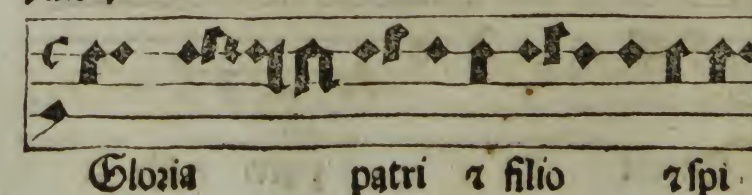 Gloꝛia patri ⁊ filio ⁊ ſpi